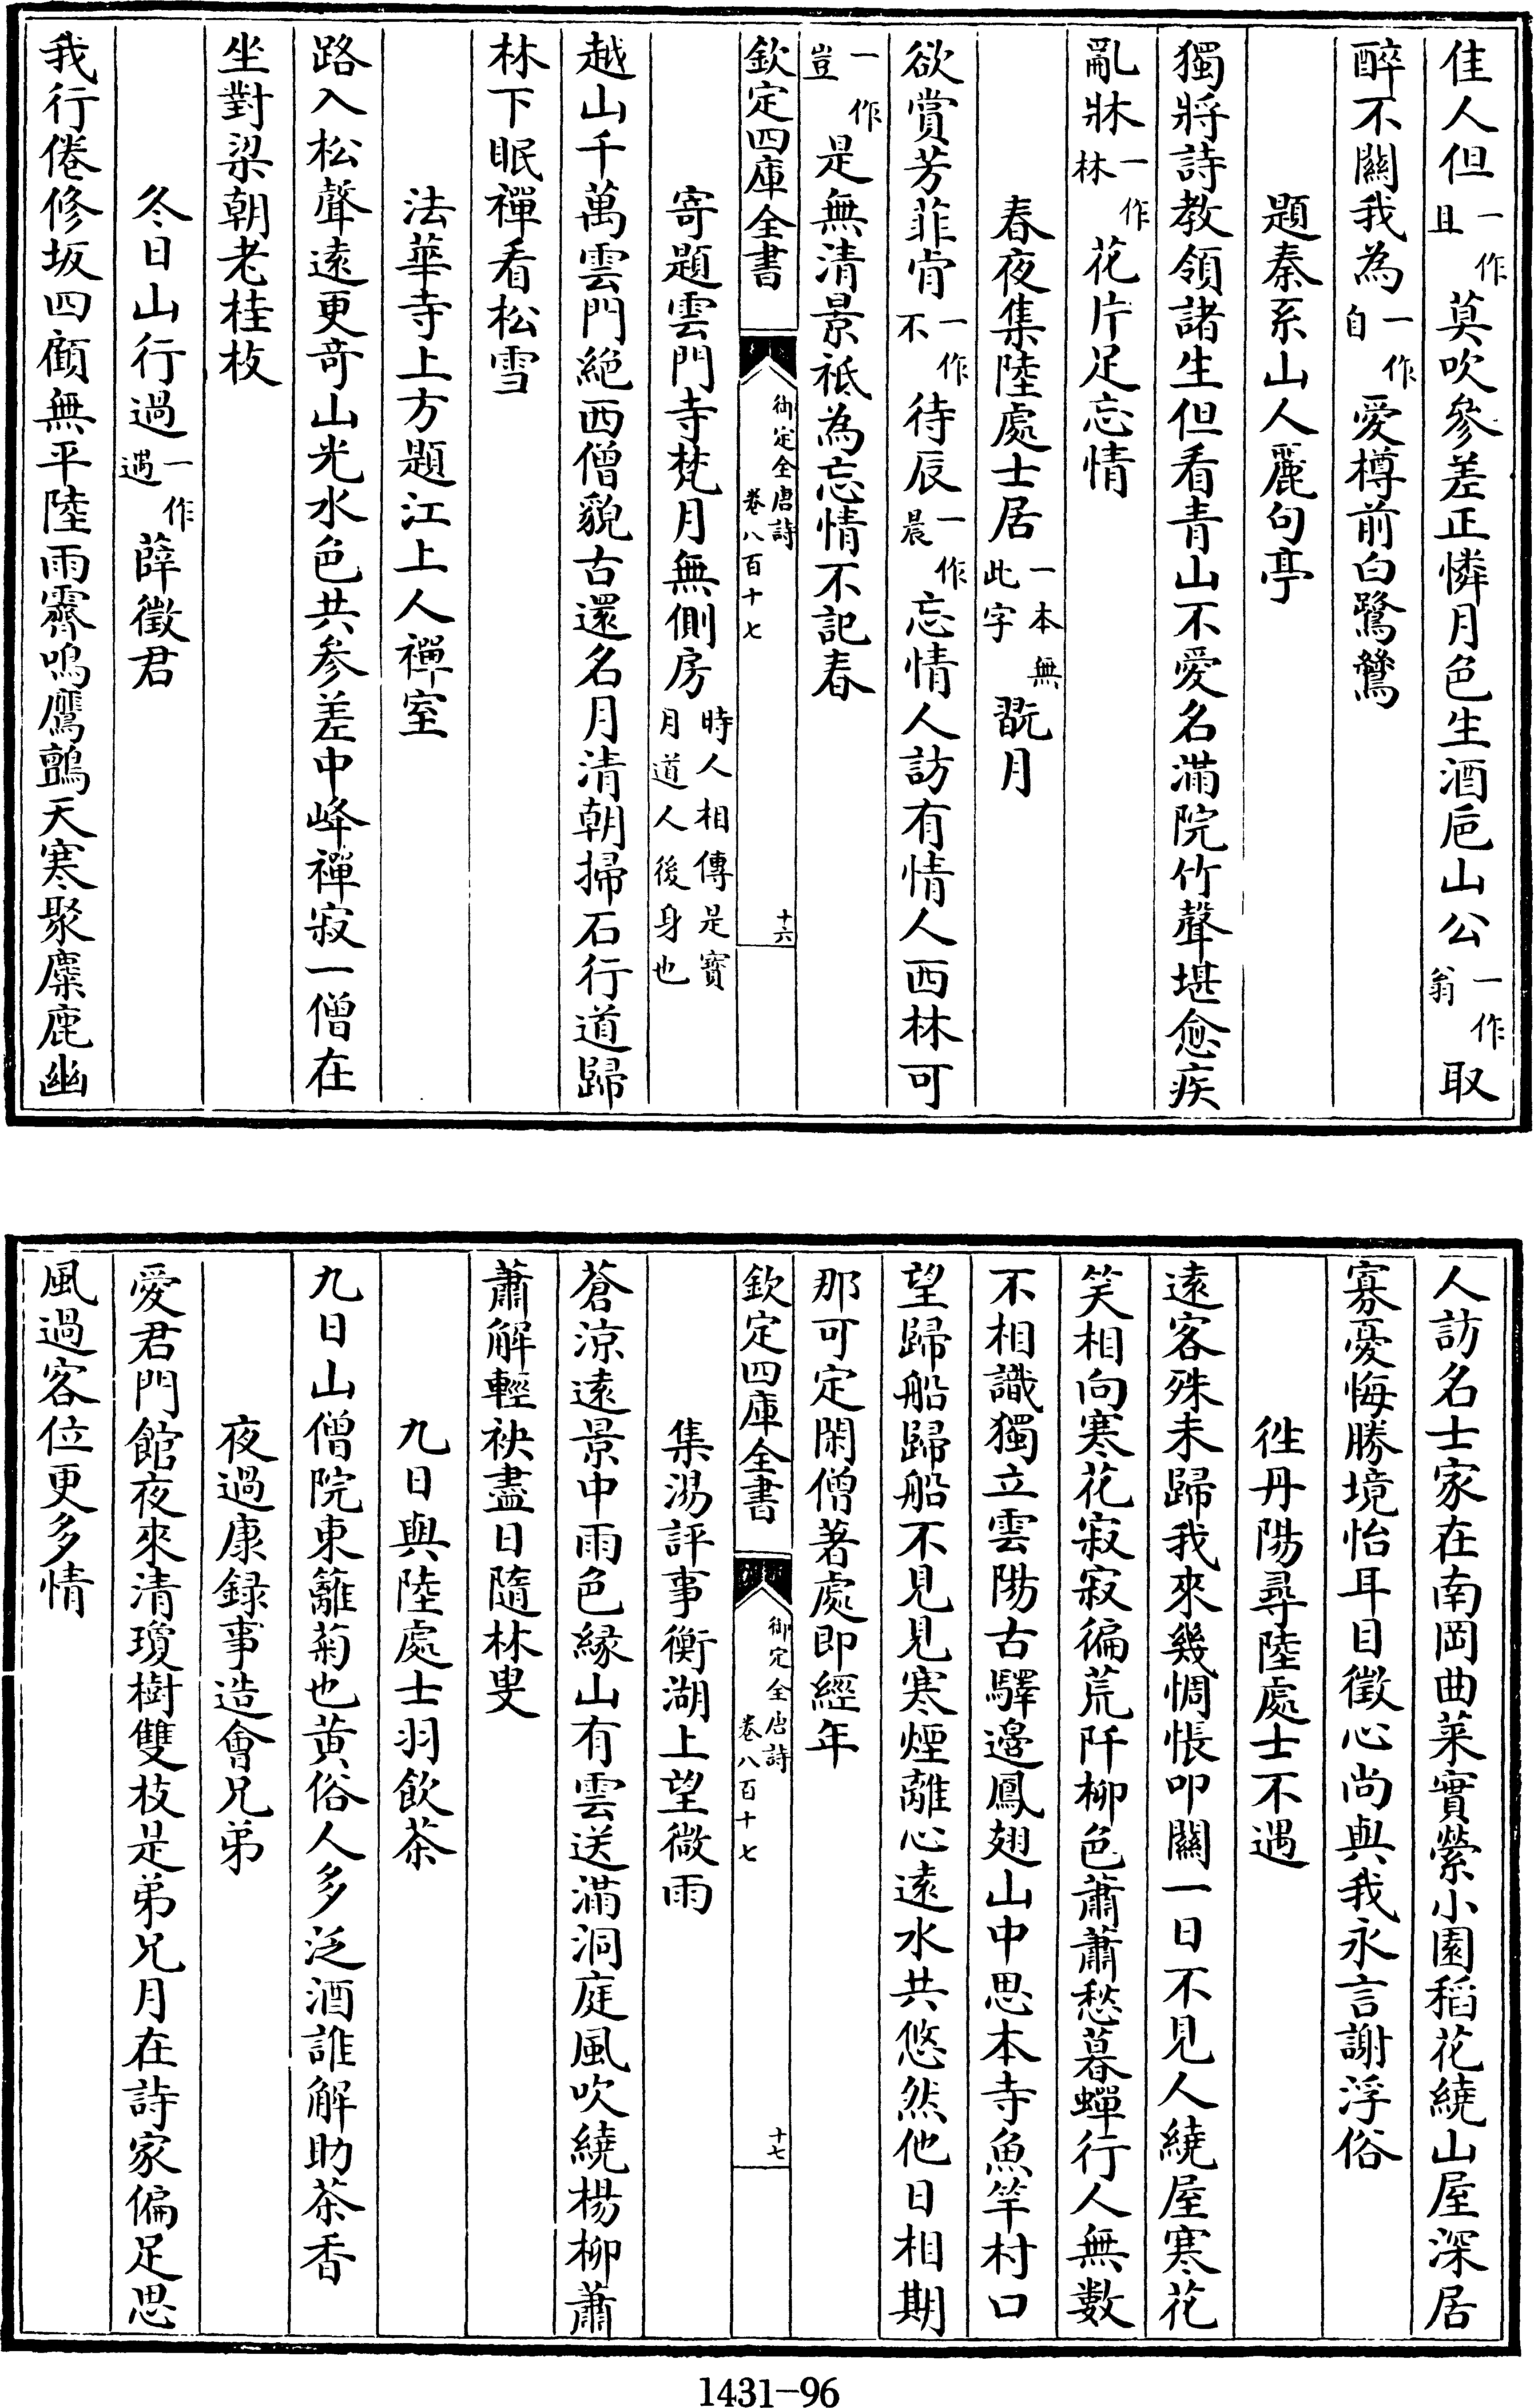 佳人但一作且莫吹參差正憐月色生酒巵山公一作翁取
醉不關我為一作自愛樽前白鷺鷥
題秦系山人麗句亭
獨將詩教領諸生但看青山不愛名滿院竹聲堪愈疾
亂牀一作林花片足忘情
春夜集陸處士居一本無此字翫月
欲賞芳菲肯一作不待辰一作晨忘情人訪有情人西林可
一作豈是無清景祇為忘情不記春
欽定四庫全書
御定全唐詩
卷八百十七
十六
寄題雲門寺梵月無側房時人相傳是寶月道人後身也
越山千萬雲門絶西僧貌古還名月清朝掃石行道歸
林下眠禪看松雪
法華寺上方題江上人禪室
路入松聲遠更奇山光水色共参差中峰禪寂一僧在
坐對梁朝老桂枝
冬日山行過一作遇薛徵君
我行倦修坂四顧無平陸雨霽鳴鷹鸇天寒聚麋鹿幽
人訪名士家在南岡曲菜實縈小園稻花繞山屋深居
寡憂悔勝境怡耳目徵心尚與我永言謝浮俗
徃丹陽尋陸處士不遇
遠客殊未歸我來幾惆悵叩關一日不見人繞屋寒花
笑相向寒花寂寂徧荒阡柳色蕭蕭愁暮蟬行人無數
不相識獨立雲陽古驛邉鳳翅山中思本寺魚竿村口
望歸船歸船不見見寒煙離心遠水共悠然他日相期
那可定閑僧著處即經年
欽定四庫全書
御定全唐詩
卷八百十七
十七
集湯評事衡湖上望微雨
蒼涼遠景中雨色縁山有雲送滿洞庭風吹繞楊柳蕭
蕭解輕袂盡日隨林叟
九日與陸處士羽飲茶
九日山僧院東籬菊也黄俗人多泛酒誰解助茶香
夜過康録事造會兄弟
愛君門館夜來清瓊樹雙枝是弟兄月在詩家偏足思
風過客位更多情
1431-96